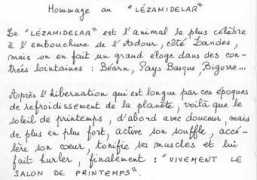 Hommage au "LÉZAMIDELAR"
Le "LÉZAMIDELAR" est l'animal le plus célèbre
à l'embouchure de l'Adour, côté Landes,
mais on en fait un grand éloge dans des con-
trées lointaines : Béarn, Pays Basque, Bigorre...
Après l'hibernation qui est longue par ces époques
de refroidissement de la planète, voilà que le
soleil de printemps, d'abord avec douceur, mais
de plus en plus fort, active son souffle, accé-
lère son cœur, tonifie ses muscles et lui
fait hurler, finalement : "VIVEMENT LE
SALON DE PRINTEMPS".